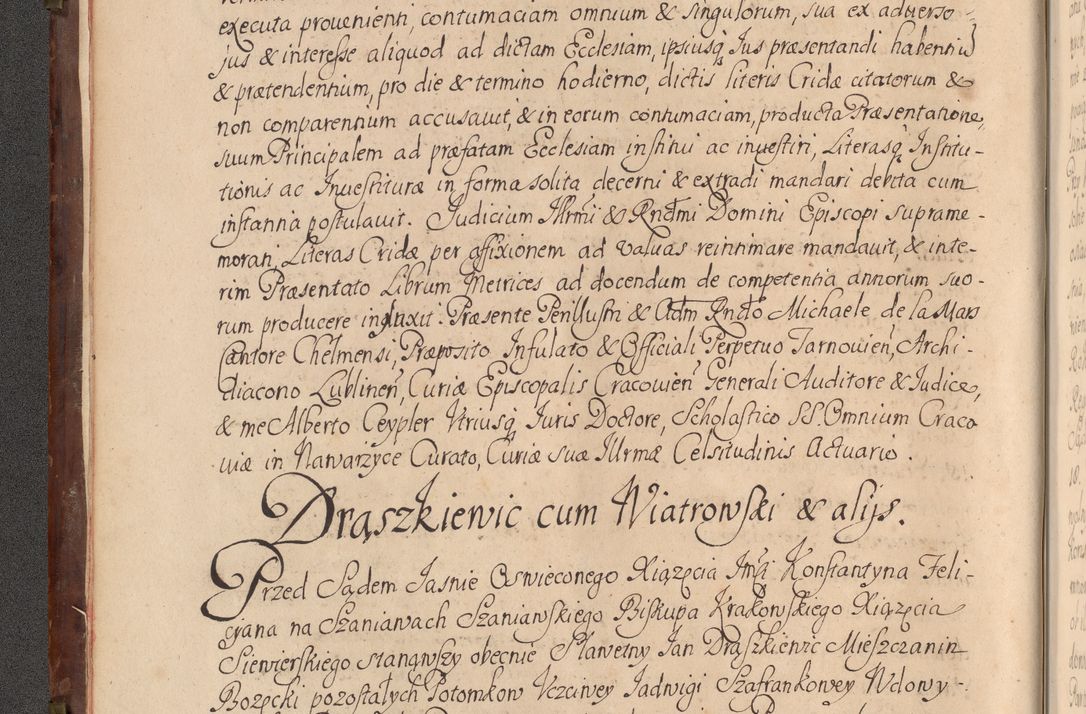 executa provenienti, contumaciam omnium & singulorum, sua ex adverso
jus & interesse aliquod ad dictam Ecclesiam, ipsiusq Jus præsentandi habentiū
& prætendentium, pro die & termino hodierno, dictis literis Cridæ citatorum &
non comparentium accusavit, & in eorum contumaciam, producta Præsentatione,
suum Principalem ad præfatam Ecclesiam institui ac investiri, Literasq Institu-
tionis ac Investituræ in forma solita decerni & extradi mandari debita cum
instantia postulavit. Judicium Illrmi & Rndmi Domini Episcopi suprame-
morati, Literas Cridæ per affixionem ad valvas reintimare mandavit, & inte-
rim Præsentato Librum Metrices ad docendum de competentia annorum suo-
rum producere induxit. Præsente Perillustri & Adm Rndo Michaele de la Mars
Cantore Chelmensi, Præposito Infulato & Officiali Perpetuo Tarnovien, Archi-
diacono Lublinen, Curiæ Episcopalis Cracovien Generali Auditore & Judice,
& me Alberto Ceypler Utriusq Juris Doctore, Scholastico SS. Omnium Craco
viæ in Nawarzyce Curato, Curiæ suæ Illrmæ Celsitudinis Actuario.
Drąszkiewic cum Wiatrowski & alijs.
Przed Sądem Jasnie Oswieconego Xiązęcia Jmci Konstantyna Feli-
cyana na Szaniawach Szaniawskiego Biskupa Krakowskiego Xiązęcia
Siewierskiego stanąwszy obecnie Sławetny Jan Drąszkiewic Mieszczanin
Bozęcki pozostałych Potomkow Uczciwey Jadwigi Szafrankowey Wdowy